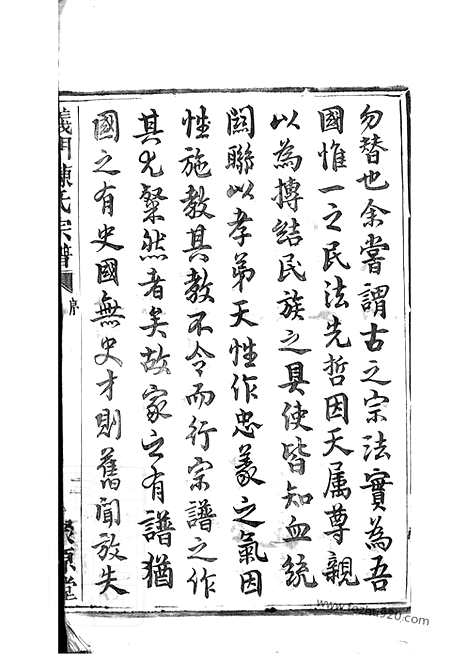 勿替也余嘗謂古之宗法實為吾
國惟一之民法先哲因天属尊親
以為摶結民族之具使皆知血統
関聯以孝弟天性作忠義之氣因
性施教其教不令而行宗譜之作
其尤粲然者矣故家之有譜猶
國之有史國無史才則舊聞放失
義門陳氏宗譜
序
二
堂
www.fozhu920.com